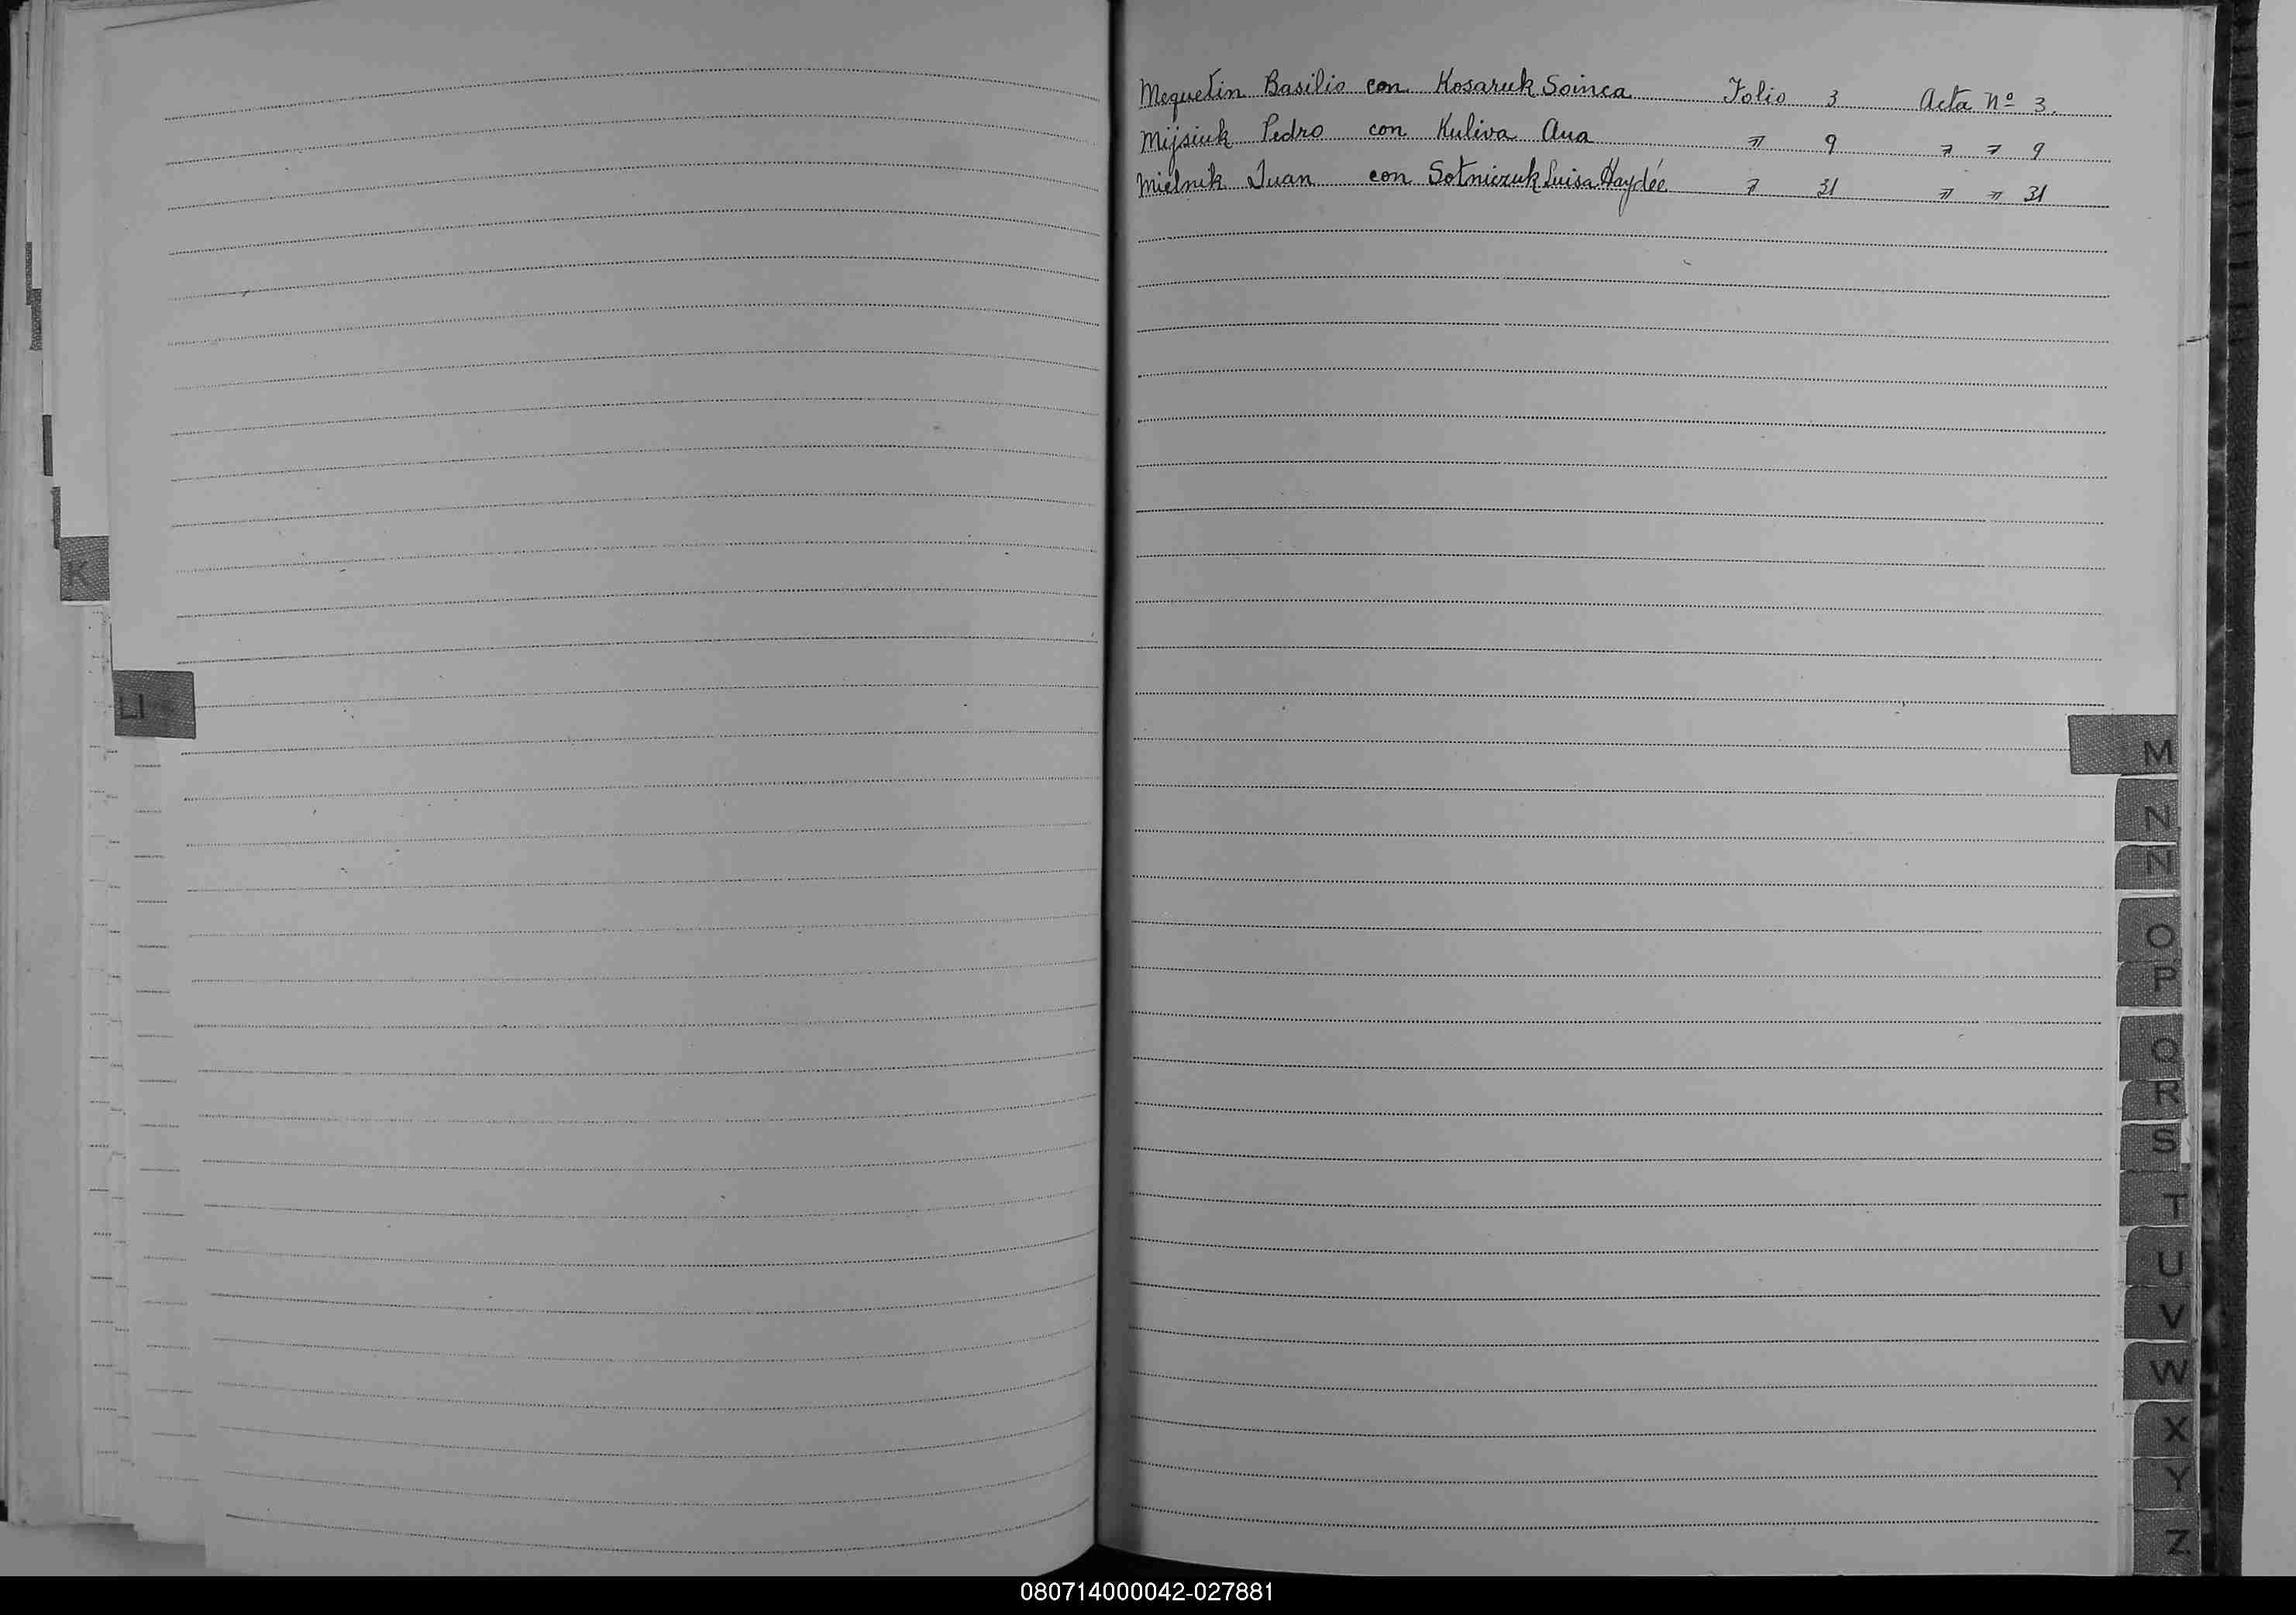 Mequetin Basilio con Kosaruk Soinca Folio 3 Acta Nº 3.
Mijsiuk Pedro con Kuliva Ana " 9 " " 9
Mielnik Juan con Sotniczuk Luisa Haydée " 31 " " 31
K
Ll
M
N
Ñ
O
P
Q
R
S
T
U
V
W
X
Y
Z
080714000042-027881